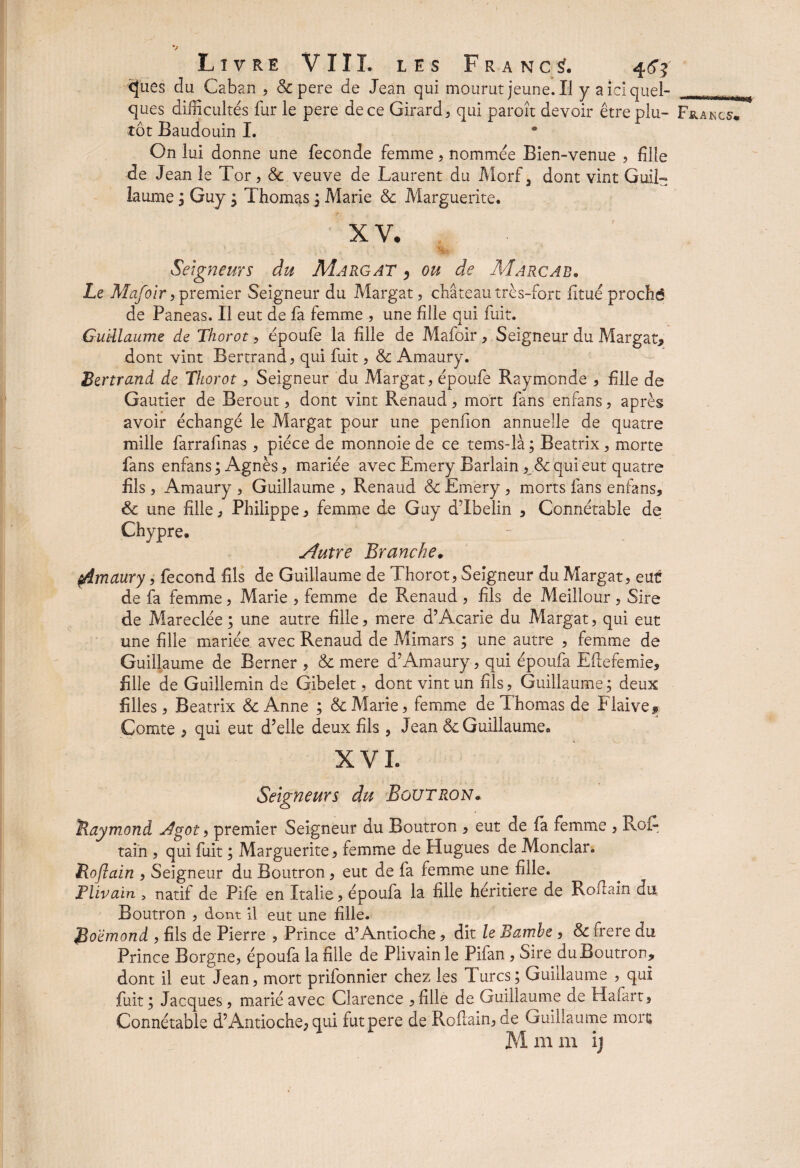 LIVRE VIII. LES FRANCS. 463
ques du Caban, & pere de Jean qui mourut jeune. Il y a ici quel-
ques difficultés sur le pere de ce Girard, qui paroît devoir être plu-
FRANCS.
tôt Baudouin I.
On lui donne une seconde femme, nommée Bien-venue, fille
de Jean le Tor, & veuve de Laurent du Morf, dont vint Guil-
laume; Guy; Thomas; Marie & Marguerite.
XV.
Seigneurs du MARGAT, ou de MARCAB.
Le Masoir, premier Seigneur du Margat, château très-fort situé proche
de Paneas. Il eut de sa femme, une fille qui suit.
Guillaume de Thorot, épouse la fille de Masoir, Seigneur du Margat,
dont vint Bertrand, qui suit, & Amaury.
Bertrand de Thorot, Seigneur du Margat, épouse Raymonde, fille de
Gautier de Berout, dont vint Renaud, mort sans enfans, après
avoir échangé le Margat pour une pension annuelle de quatre
mille sarrasinas, piéce de monnoie de ce tems-là; Beatrix, morte
sans enfans; Agnès, mariée avec Emery Barlain, & qui eut quatre
fils, Amaury, Guillaume, Renaud & Emery, morts sans enfans,
& une fille, Philippe, femme de Guy d'Ibelin, Connétable de
Chypre.
Autre Branche.
Amaury, second fils de Guillaume de Thorot, Seigneur du Margat, eut
de sa femme, Marie, femme de Renaud, fils de Meillour, Sire
de Mareclée; une autre fille, mere d'Acarie du Margat, qui eut
une fille mariée avec Renaud de Mimars; une autre, femme de
Guillaume de Berner, & mere d'Amaury, qui épousa Estefemie,
fille de Guillemin de Gibelet, dont vint un fils, Guillaume; deux
filles, Beatrix & Anne; & Marie, femme de Thomas de Flaive,
Comte, qui eut d'elle deux fils, Jean & Guillaume.
XVI.
Seigneurs du BOUTRON.
Raymond Agot, premier Seigneur du Boutron, eut de sa femme, Ros-
tain, qui suit; Marguerite, femme de Hugues de Monclar.
Rostain, Seigneur du Boutron, eut de sa femme une fille.
Plivain, natif de Pise en Italie, épousa la fille héritiere de Rostain du
Boutron, dont il eut une fille.
Boëmond, fils de Pierre, Prince d'Antioche, dit le Bambe, & frere du
Prince Borgne, épousa la fille de Plivain le Pisan, Sire du Boutron,
dont il eut Jean, mort prisonnier chez les Turcs; Guillaume, qui
suit; Jacques, marié avec Clarence, fille de Guillaume de Hasart,
Connétable d'Antioche, qui fut pere de Rostain, de Guillaume mort
Mmm ij